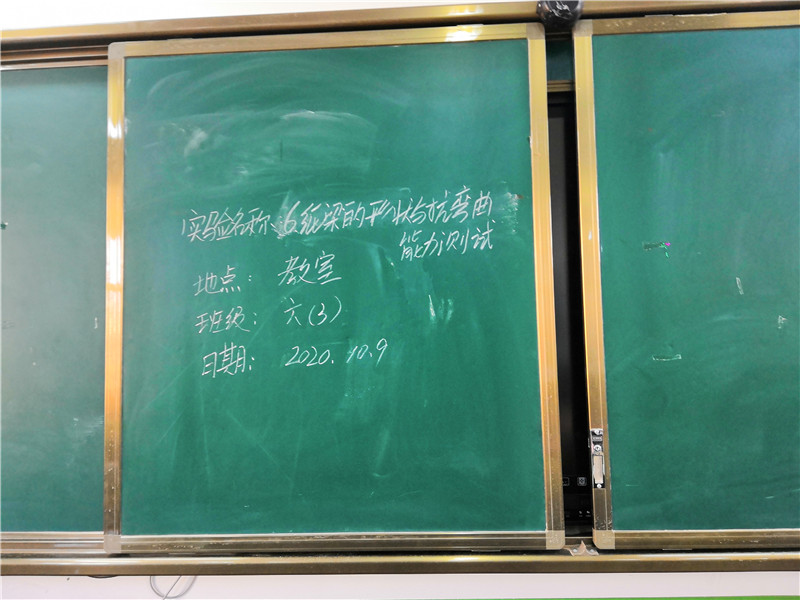 实验名称:6纸梁的形状与抗弯曲
能力测试
地点: 教室
班级: 六(3)
日期: 2020.10.9